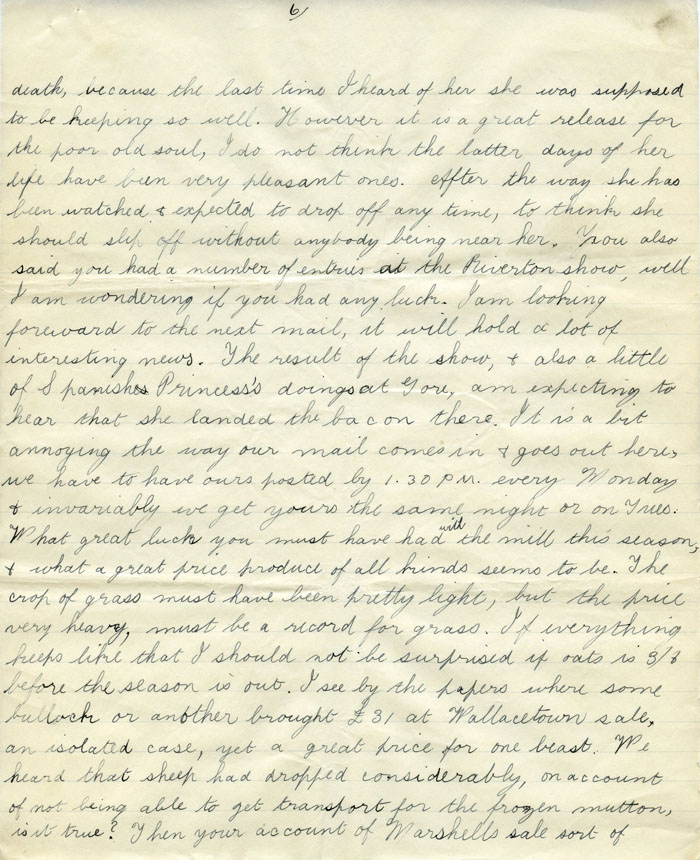 6/
death, because the last time I heard of her she was supposed
to be keeping so well. However it is a great release for
the poor old soul, I do not think the latter days of her
life have been very pleasant ones. After the way she has
been watched & expected to drop off any time, to think she
should slip off without anybody being near her. You also
said you had a number of entries at the Riverton show, well
I am wondering if you had any luck. I am looking
foreward to the next mail, it will hold a lot of
interesting news. The result of the show, & also a little
of Spanishes Princess's doings at Gore, am expecting to
hear that she landed the bacon there. It is a bit
annoying the way our mail comes in & goes out here,
we have to have ours posted by 1.30 P.M. every Monday
& invariably we get yours the same night or on Tues.
What great luck you must have had with the mill this season,
& what a great price produce of all kinds seems to be. The
crop of grass must have been pretty light, but the price
very heavy, must be a record for grass. If everything
keeps like that I should not be surprised if oats is 3/6
before the season is out. I see by the papers where some
bullock or another brought £31 at Wallacetown sale,
an isolated case, yet a great price for one beast. We
heard that sheep had dropped considerably, on account
of not being able to get transport for the frozen mutton,
is it true? Then your account of Marshells sale sort of